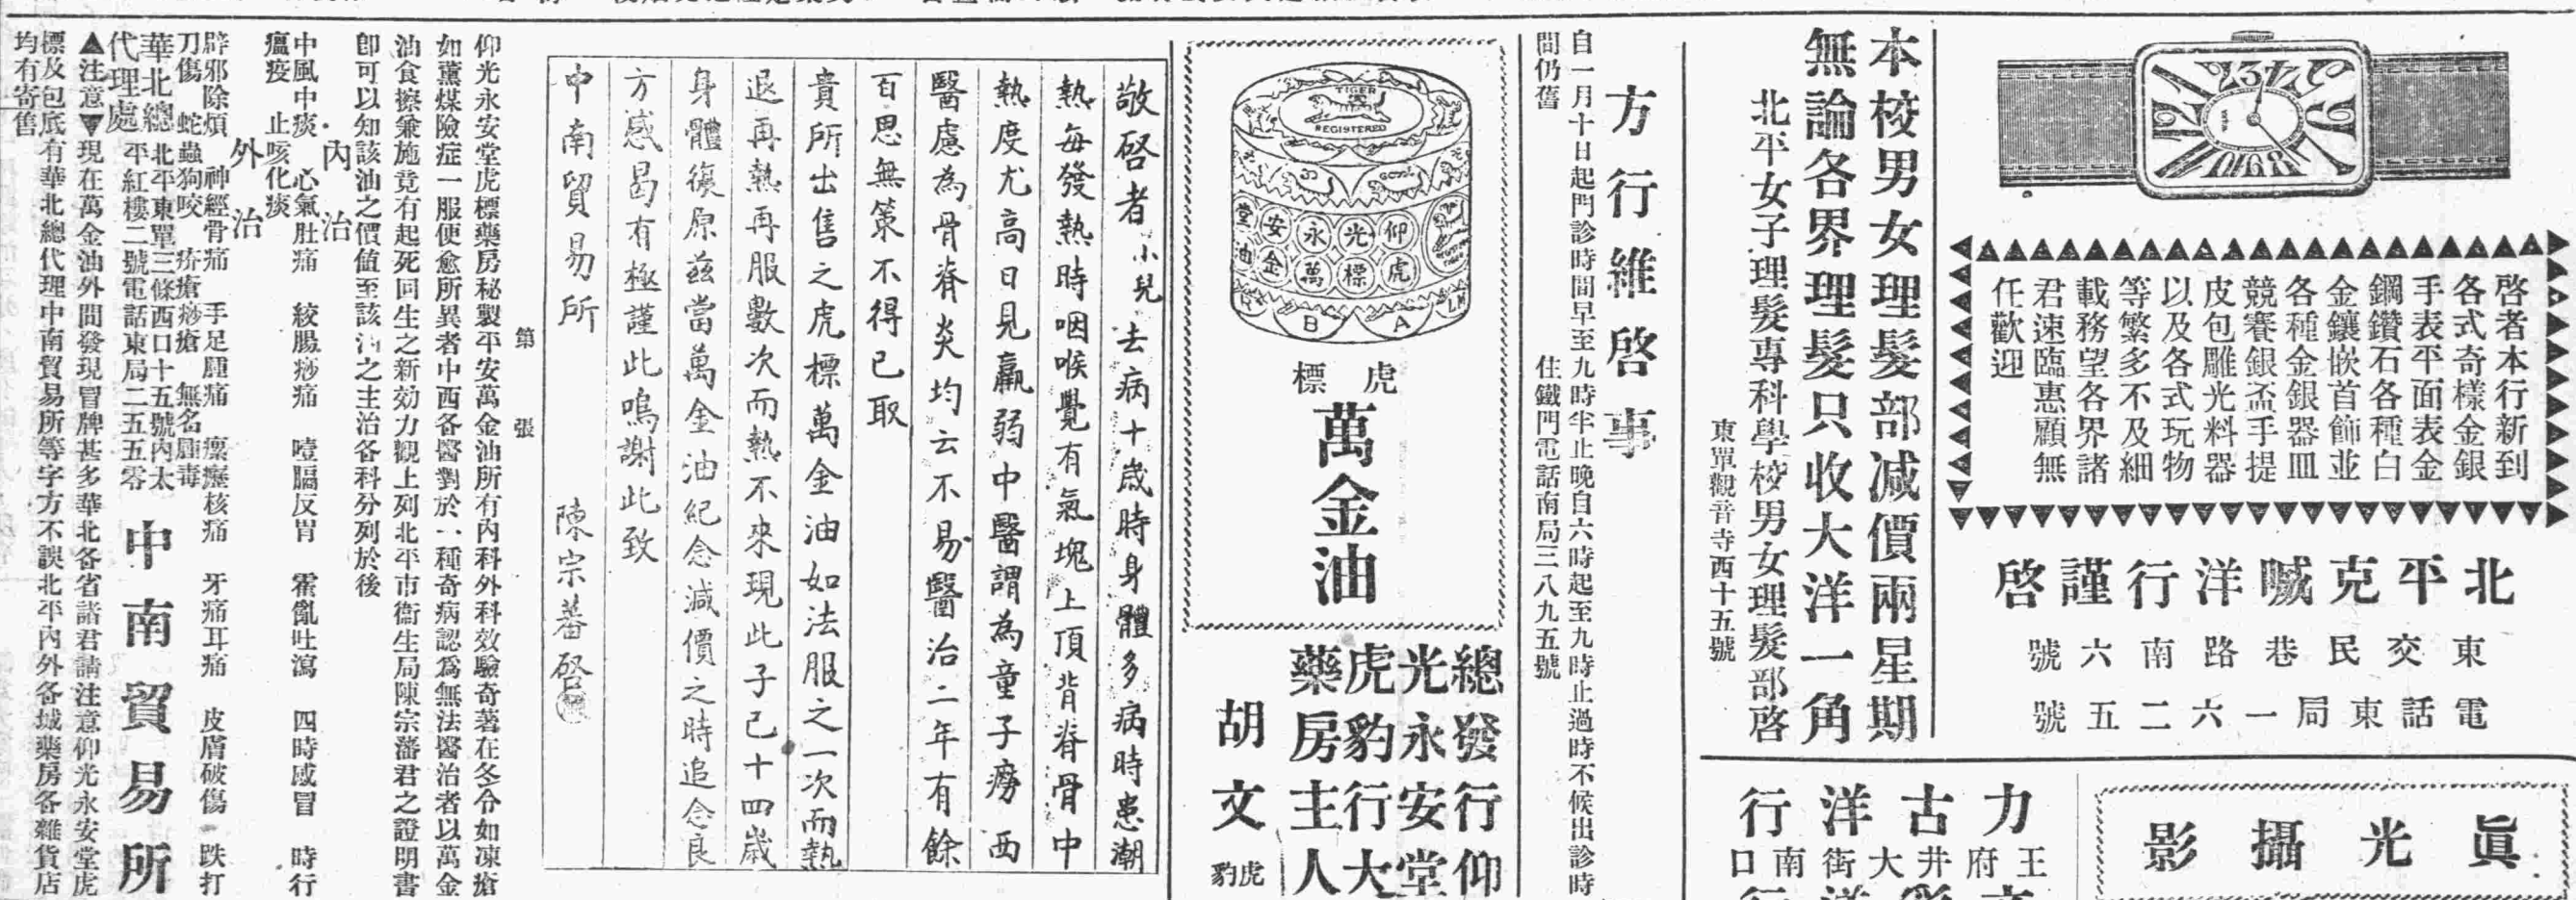 啓者本行新到
各式奇樣金銀
手表平面表金
鋼鑽石各種白
金鑲嵌首飾並
各種金銀器皿
競賽銀盃手提
皮包雕光料器
以及各式玩物
等繁多不及細
載務望各界諸
君速臨惠顧無
任歡迎
北平克喊洋行謹啓
東交民巷路南六號
電話東局一六二五號
本校男女理髮部减價兩星期
無論各界理髮只收大洋一角
北平女子理髮專科學校男女理髮部啓
東單觀音寺西十五號
眞光攝影
力古洋行
王府井大街南口
方行維啓事
自一月十日起門診時間早至九時半止晚自六時起至九時止過時不候出診時
間仍舊
住鐵門電話南局三八九五號
TIGER
REGISTERED
仰光永安堂
虎標萬金油
B A
虎標
萬金油
總發行仰
光永安堂
虎豹行大
藥房主人
胡文虎豹
敬啓者小兒去病十歲時身體多病時患潮
熱每發熱時咽喉覺有氣塊上頂背脊骨中
熱度尤高日見羸弱中醫謂為童子癆西
醫慮為骨脊炎均云不易醫治二年有餘
百思無策不得已取
貴所出售之虎標萬金油如法服之一次而熱
退再熱再服數次而熱不來現此子已十四歲
身體復原茲當萬金油紀念減價之時追念良
方感曷有極謹此鳴謝此致
中南貿易所
陳宗蕃啓
第 張
仰光永安堂虎標藥房秘製平安萬金油所有內科外科效驗奇著在冬令如凍瘡
如薰煤險症一服便愈所異者中西各醫對於一種奇病認爲無法醫治者以萬金
油食擦兼施竟有起死回生之新効力觀上列北平市衞生局陳宗藩君之證明書
卽可以知該油之價値至該油之主治各科分列於後
內治
中風中痰 心氣肚痛 絞腸痧痛 噎膈反胃 霍亂吐瀉 四時感冒 時行
瘟疫 止咳化痰
外治
辟邪除煩 神經骨痛 手足腫痛 瘰癧核痛 牙痛耳痛 皮膚破傷 跌打
刀傷 蛇蟲狗咬 疥瘡痧瘡 無名腫毒
華北總代理處
北平東單三條西口十五號內太
平紅樓二號電話東局二五五零
中南貿易所
▲注意▼現在萬金油外間發現冒牌甚多華北各省諸君請注意仰光永安堂虎
標及包底有華北總代理中南貿易所等字方不誤北平內外各城藥房各雜貨店
均有寄售